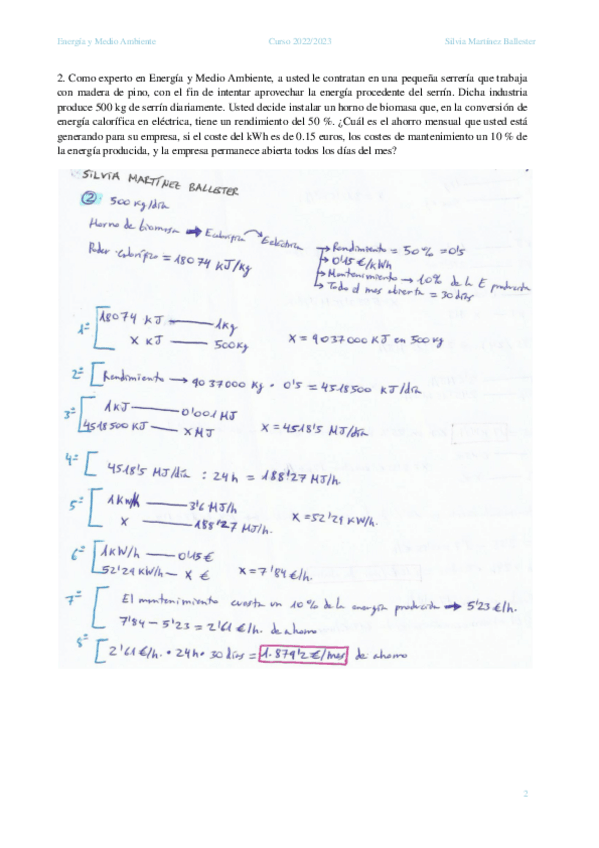 Energía y Medio Ambiente Curso 2022/2023 Silvia Martínez Ballester
2. Como experto en Energía y Medio Ambiente, a usted le contratan en una pequeña serrería que trabaja
con madera de pino, con el fin de intentar aprovechar la energía procedente del serrín. Dicha industria
produce 500 kg de serrín diariamente. Usted decide instalar un horno de biomasa que, en la conversión de
energía calorífica en eléctrica, tiene un rendimiento del 50 %. ¿Cuál es el ahorro mensual que usted está
generando para su empresa, si el coste del kWh es de 0.15 euros, los costes de mantenimiento un 10 % de
la energía producida, y la empresa permanece abierta todos los días del mes?
SILVIA MARTÍNEZ BALLESTER
② 500 kg/día
Horno de biomasa → Ecalorífica → Eeléctrica → Rendimiento = 50% = 0'5
→ 0'15 €/kWh
Poder calorífico = 18074 KJ/kg → Mantenimiento → 10% de la E producida
→ Todo el mes abierta = 30 días
1º [ 18074 KJ — 1kg
X KJ — 500kg X = 9037000 KJ en 500 kg
2º [ Rendimiento → 9037000 Kg · 0'5 = 4518500 KJ/día
3º [ 1KJ — 0'001 MJ
4518500 KJ — X MJ X = 4518'5 MJ/día
4º [ 4518'5 MJ/día : 24h = 188'27 MJ/h.
5º [ 1KW/h — 3'6 MJ/h
X — 188'27 MJ/h. X = 52'29 KW/h.
6º [ 1KW/h — 0'15 €
52'29 KW/h — X € X = 7'84 €/h.
7º [ El mantenimiento cuesta un 10% de la energía producida → 5'23 €/h.
7'84 - 5'23 = 2'61 €/h. de ahorro
8º [ 2'61 €/h. · 24h · 30 días = 1.879'2 €/mes de ahorro
2